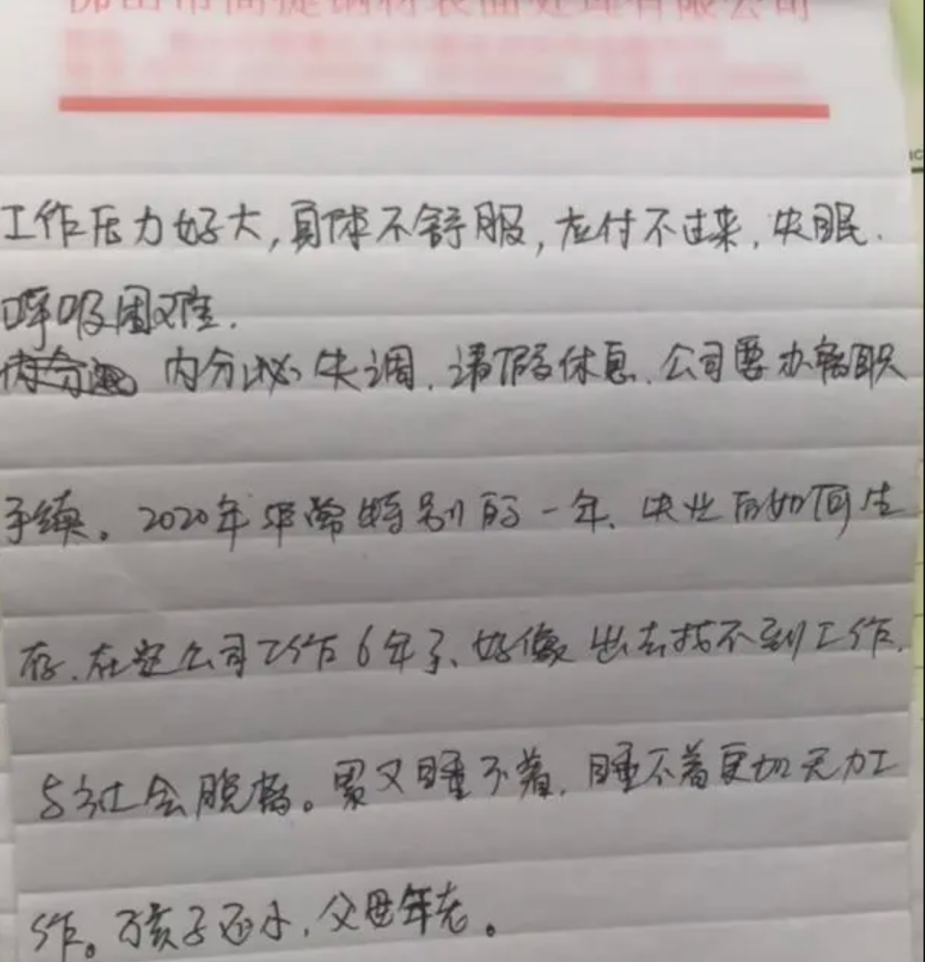 工作压力好大,身体不舒服,应付不过来,失眠.
呼吸困难.
内分泌 内分泌失调,请假休息,公司要办离职
手续。2020年非常特别的一年、失业后如何生
存.在这公司工作6年了、好像出去找不到工作.
与社会脱离。累又睡不着,睡不着更加无力工
作。孩子还小,父母年老。